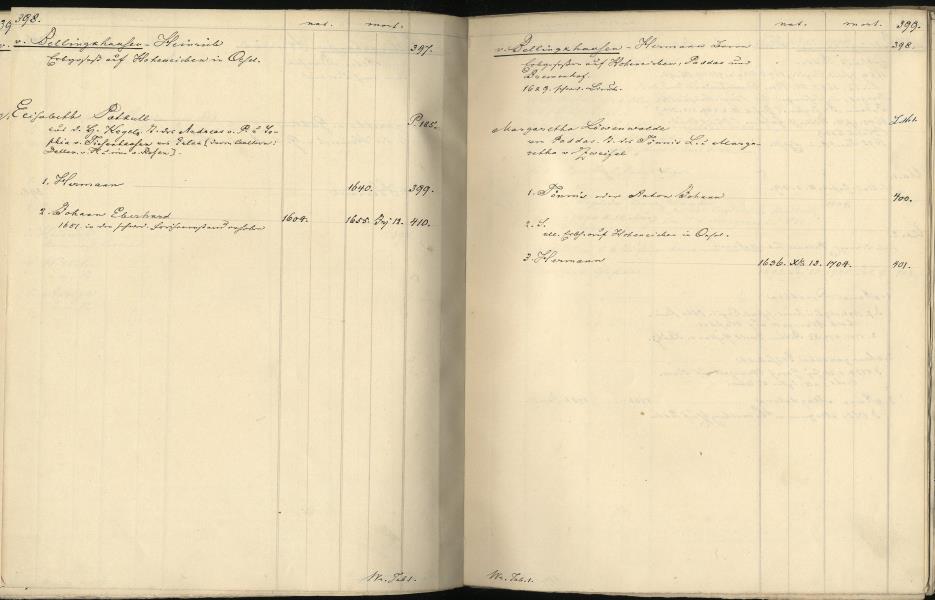 398.
nat. mort.
v. Bellingshausen - Heinrich 397.
Erbgesess auf Hoheneichen in Oesel.
Elisabeth Patkull P. 185.
aus d. H. Kegel, T. des Andreas v. P. u So-
phia v. Tiesenhausen
1. Hermann 1640. 399.
2. Johann Eberhard 1604. 1655. 12. 410.
1651. in der schwed.
Wr. Tab. 1.
nat. mort. 399.
v. Bellingshausen - Hermann 398.
Erbgesessen auf Hoheneichen, Paddas und
1629. schwed.
Margaretha Löwenwolde
von Paddas. T. des Tönnis L. u Marga-
retha v. Zweifel
1. Tönnis oder Anton Johann 400.
2. S.
auf Hoheneichen in Oesel.
3. Hermann 1636. Xb. 13. 1704. 401.
Wr. Tab. 1.